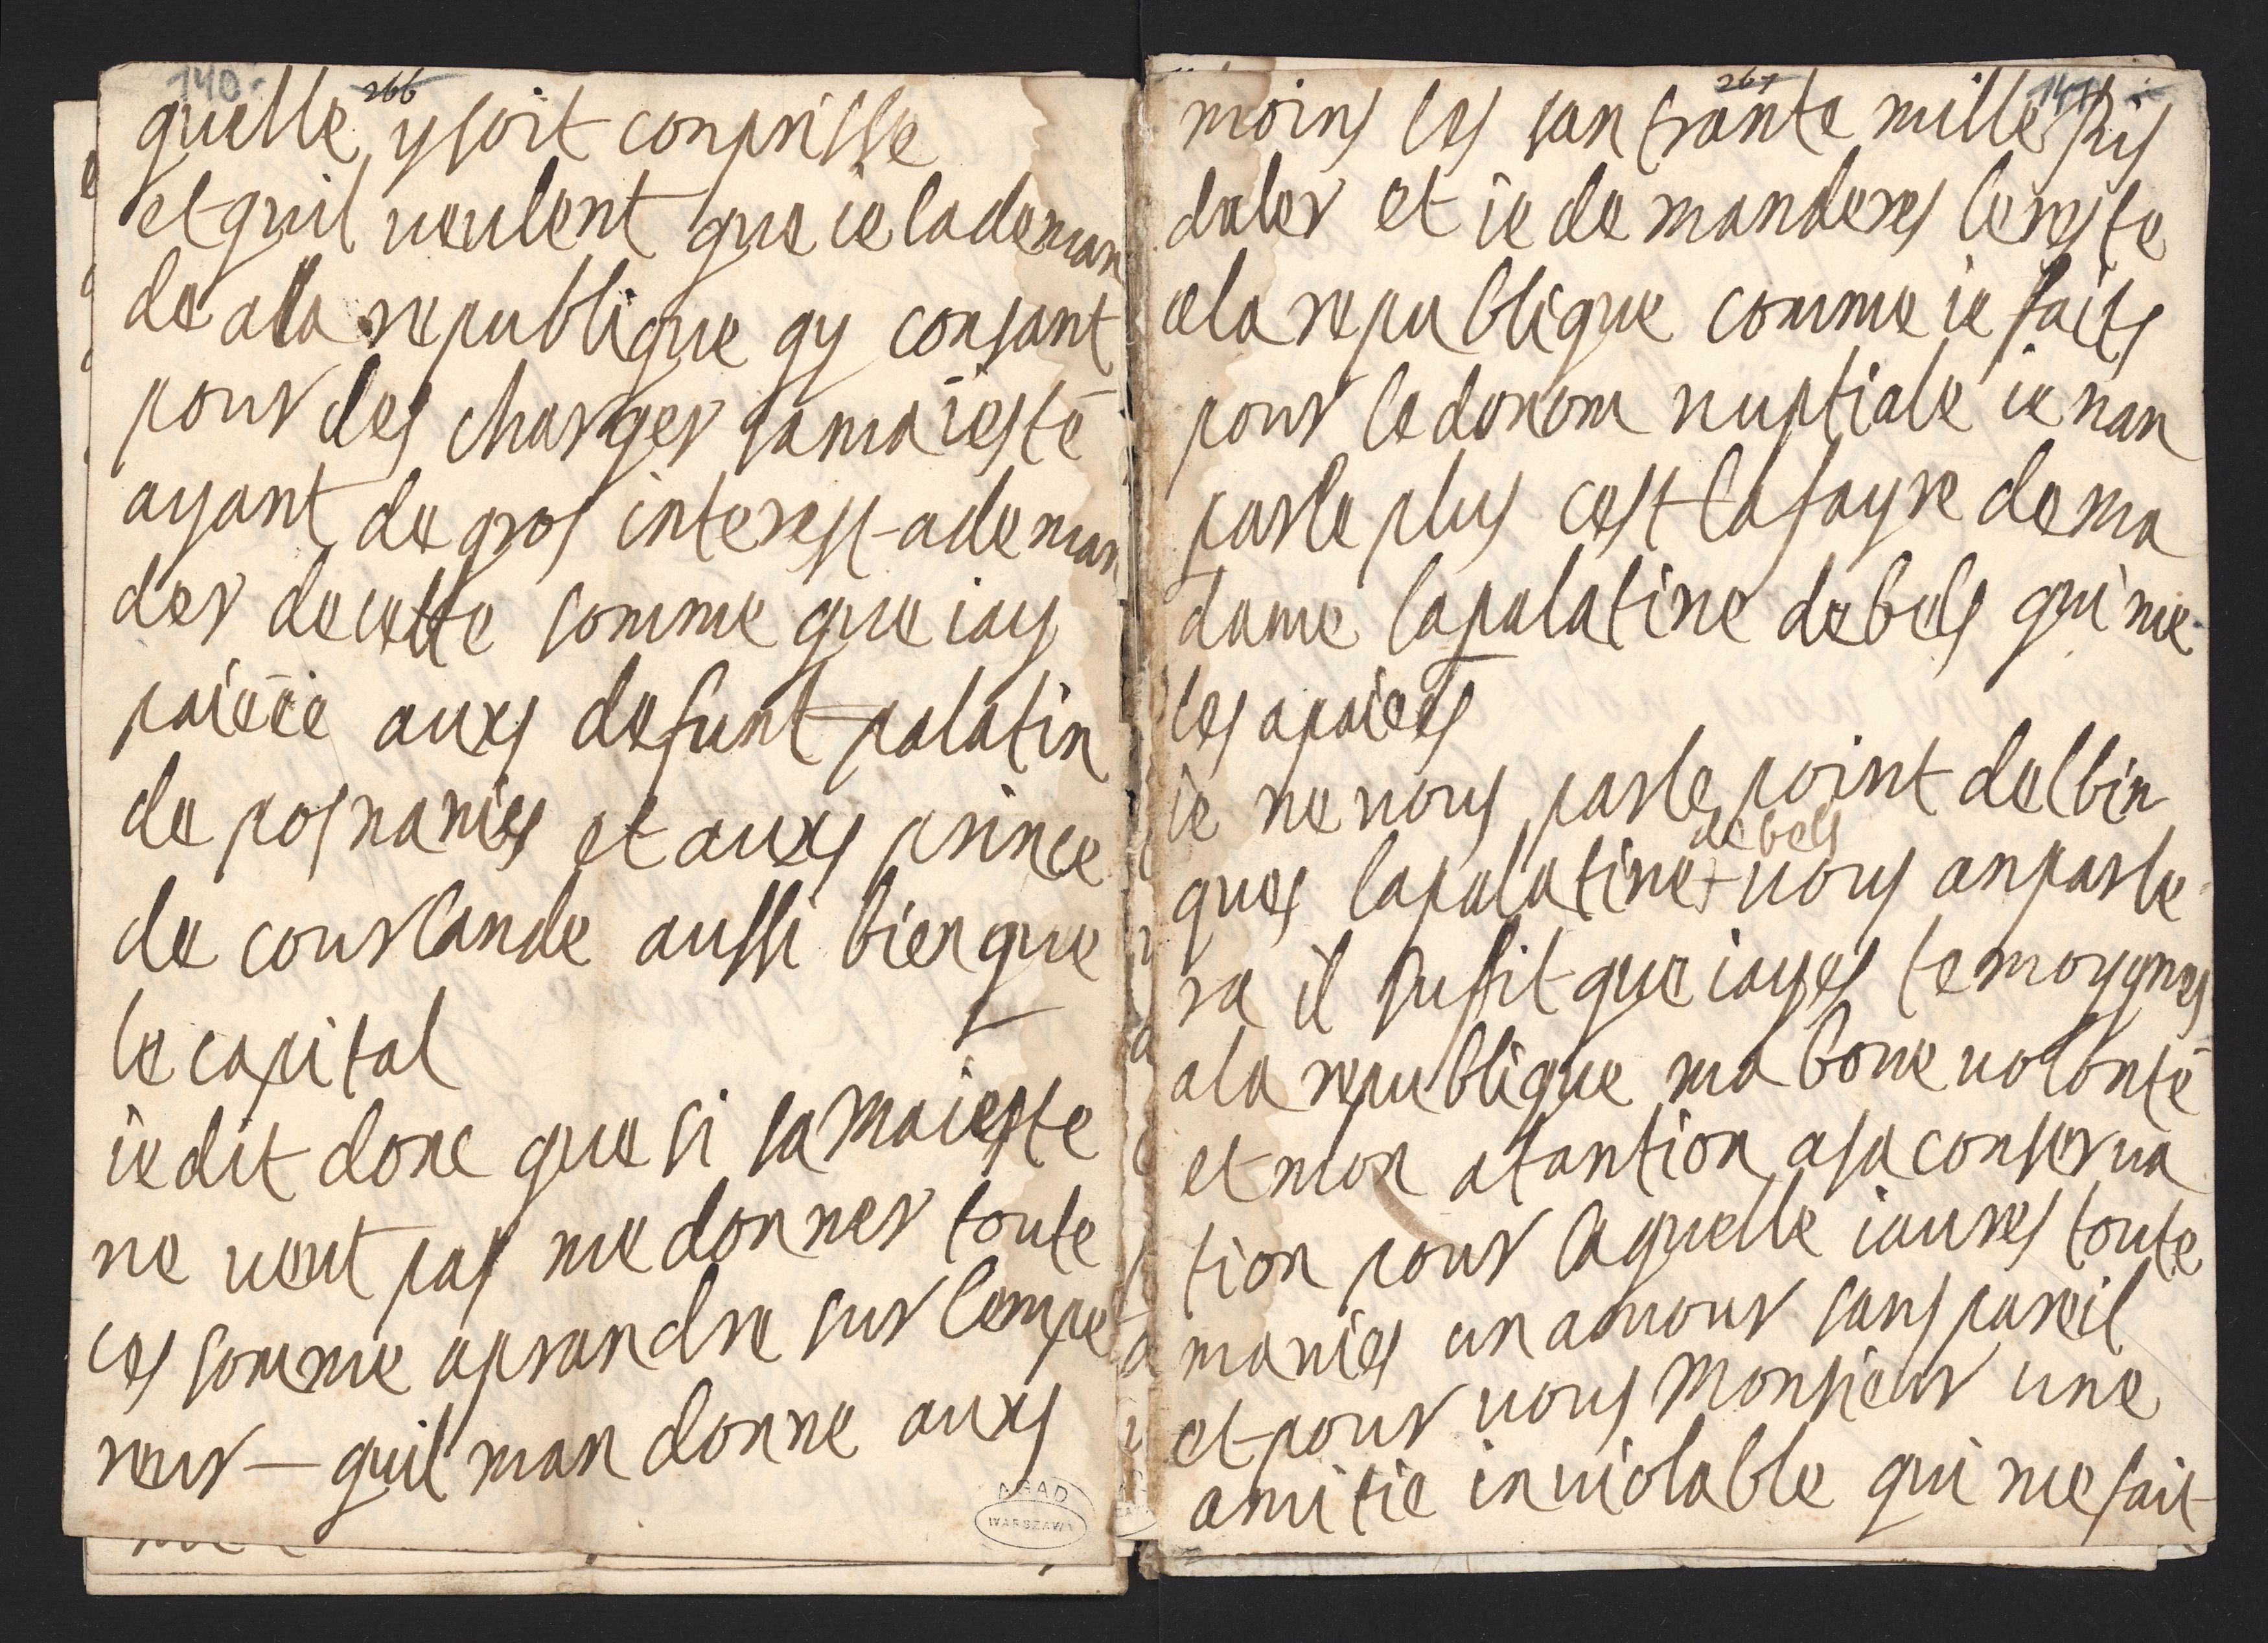 140
266
quelle ysoit conprisse
et quil ueulent que ie lademan
de alla republique qy consant
pour des charger samaiesté
ayant de gros interest ademan
der decette somme que iay
paiéée auxs defunt palatin
de posnanies et auxs prince
de courlande aussi bien que
le capital
ie dit donc que si sa maieste
ne ueut pas me donner toute
ces somme aprandre sur lempe
reur — quil man donne auxs
AGAD
WARSZAWA
267
141
moins ces san trante mille Ris
daler et ie de manderes lereste
ala republique comme ie faits
pour ledonom nuptiale ie nan
parle plus cest lafayre dema
dame lapalatine debels qui me
les apaiees
ie ne uous parle point delbin
debels
ques lapalatine + uous anparle
ra il sufit que iayes temoygnes
ala republique ma bone uolonté
et mon atantion asa conserua
tion pour laquelle iaures toute
manies un amour sans pareil
et pour uous Monsieur une
amitie inuiolable qui me fait